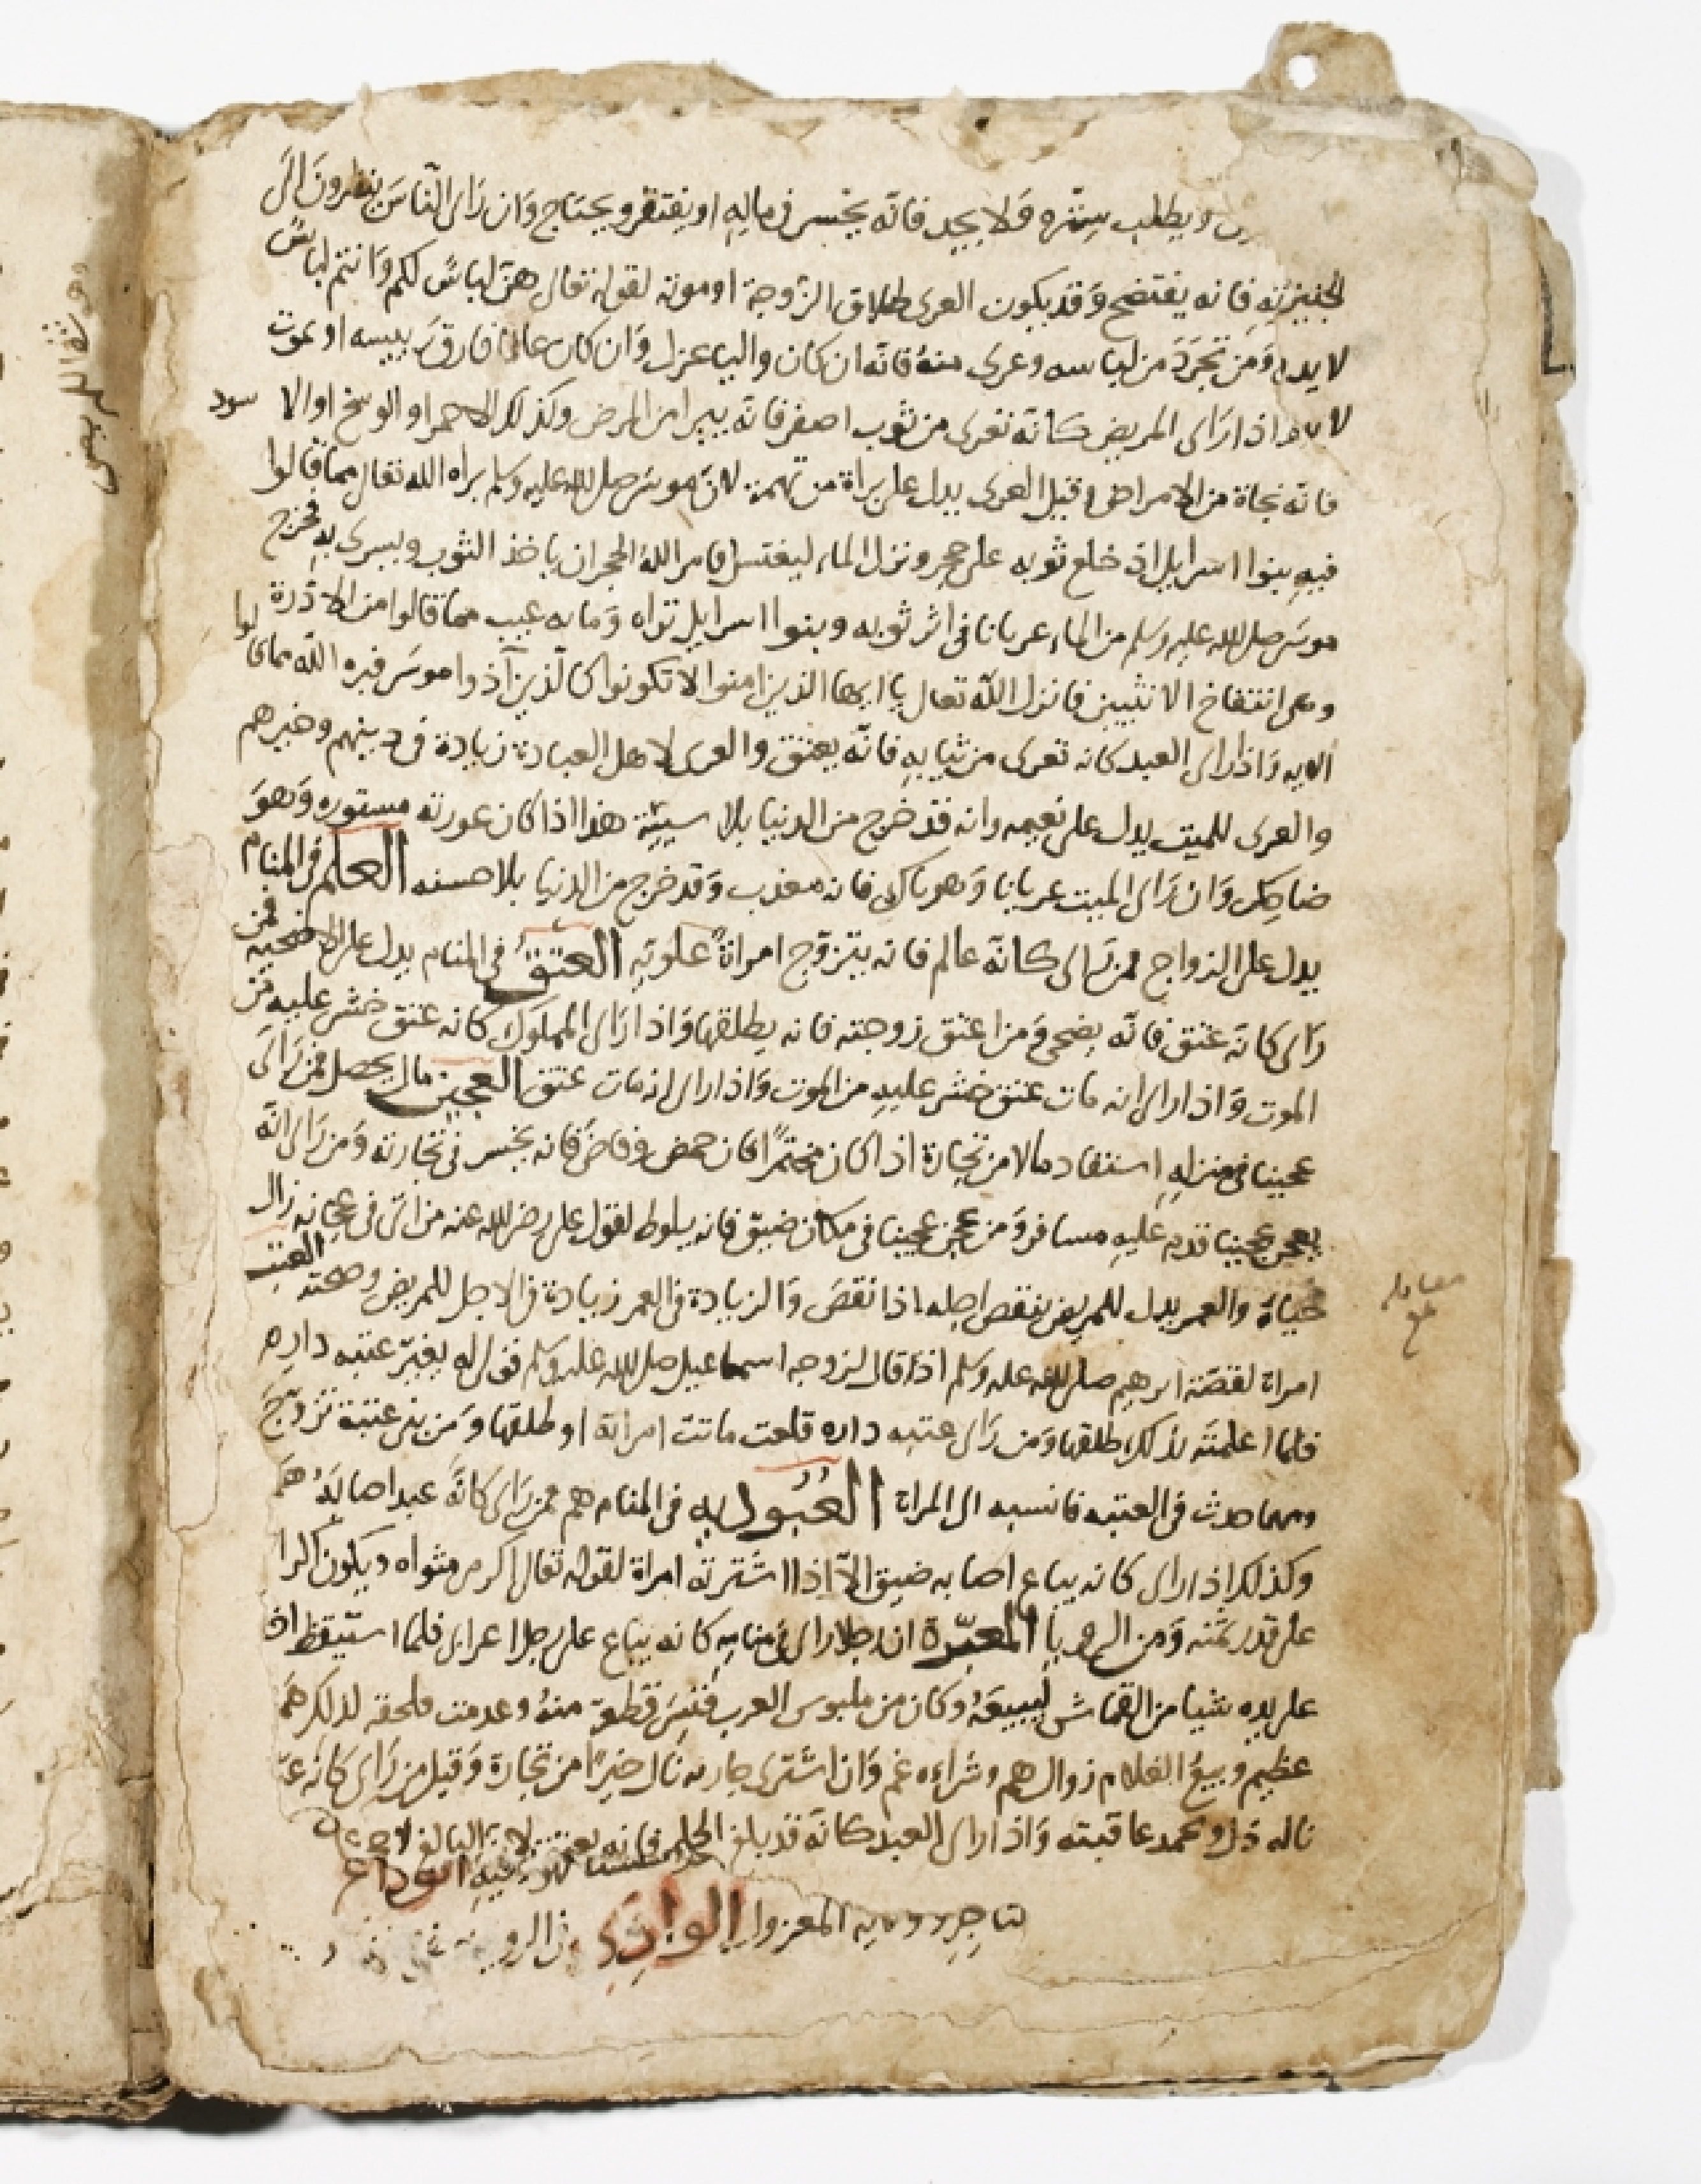 ويطلب سترة ولا يجد فانه يخسر في ماله او يفتقر ويحتاج وان راى الناس ينظرون الى
فانه يفتضح وقد يكون العرى طلاق الزوجة او موته لقوله تعالى هن لباس لكم وانتم لباس
ومن تجرد من لباسه وعرى منه فانه ان كان واليا عزل وان كان عالما فارق رييسه او يموت
لا بد اذا راى المريض كانه تعرى من ثوب اصفر فانه يبرا من المرض وكذلك الاحمر او الوسخ او الاسود
فانه نجاة من الامراض وقيل العرى يدل على براة من تهمة لان موسى صلى الله عليه وسلم براه الله تعالى مما قالوا
فيه بنوا اسرايل اذ خلع ثوبه على حجر ونزل الماء ليغتسل فامر الله الحجر ان ياخذ الثوب ويسرى به فخرج
موسى صلى الله عليه وسلم من الماء عريانا في اثر ثوبه وبنوا اسرايل تراه وما به عيب مما قالوا من الادرة
وهى انتفاخ الانثيين فانزل الله تعالى يا ايها الذين امنوا لا تكونوا كالذين آذوا موسى فبره الله مما قالوا
الايه واذا راى العبد كانه تعرى من ثيابه فانه يعتق والعرى لاهل العبادة زيادة في دينهم وخيرهم
والعرى للميت يدل على نعيمه وانه قد خرج من الدنيا بلا سيئة هذا اذا كان عورته مستوره وهو
ضاحك وان راى الميت عريانا وهو باكى فانه معذب وقد خرج من الدنيا بلا حسنه العلم في المنام
يدل على الزواج فمن راى كانه عالم فانه يتزوج امراة علويه العتق في المنام يدل على الاضحيه فمن
راى كانه عتق فانه يضحى ومن اعتق زوجته فانه يطلقها واذا راى المملوك كانه عتق خشى عليه من
الموت واذا راى انه مات عتق خشى عليه من الموت واذا راى انه مات عتق العجين مال يحصل فمن راى
عجينا في منزله استفاد مالا من تجارة اذا كان مختمرا فان حمض وفاض فانه يخسر في تجارته ومن راى انه
يعجن عجينا قدم عليه مسافر ومن عجن عجينا في مكان ضيق فانه يلوط لقول على رضى الله عنه من اتى في عجانه زال
حياة والعمر يدل للمريض بنقص اجله اذا نقص والزيادة في العمر زيادة في الاجل للمريض وصحته العتبه
امراة لقصة ابرهيم صلى الله عليه وسلم اذ قال لزوجه اسماعيل صلى الله عليه وسلم قولى له يغير عتبه داره
فلما اعلمته لذلك طلقها ومن راى عتبه داره قلعت ماتت امراته او طلقها ومن بنى عتبة تزوج
ومهما حدث في العتبه فانسبه الى المراة العبوديه في المنام هم فمن راى كانه عبد اصابه هم
وكذلك اذا راى كانه يباع اصابه ضيق الا اذا اشترته امراة لقوله تعالى اكرمى مثواه ويكون اكراما
على قدر ثمنه ومن الرويا المعبرة ان رجلا راى في منامه كانه يباع على رجل اعرابى فلما استيقظ اخذ
على يده شيا من القماش ليبيعه وكان من ملبوس العرب قطعة منه وعدمت فلحقه لذلك هم
عظيم وبيع الغلام زوال هم وشراءه غم وان اشترى جارية نال خيرا من تجارة وقيل من راى كانه
ناله ذل وتحمد عاقبته واذا راى العبد كانه قد بلغ الحلم فانه يعتق لان البالغ لا